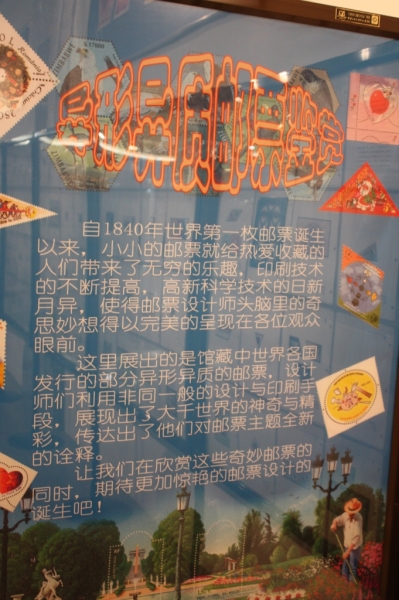 异形异质邮票鉴赏
自1840年世界第一枚邮票诞生
以来，小小的邮票就给热爱收藏的
人们带来了无穷的乐趣，印刷技术
的不断提高，高新科学技术的日新
月异，使得邮票设计师头脑里的奇
思妙想得以完美的呈现在各位观众
眼前。
这里展出的是馆藏中世界各国
发行的部分异形异质的邮票，设计
师们利用非同一般的设计与印刷手
段，展现出了大千世界的神奇与精
彩，传达出了他们对邮票主题全新
的诠释。
让我们在欣赏这些奇妙邮票的
同时，期待更加惊艳的邮票设计的
诞生吧！